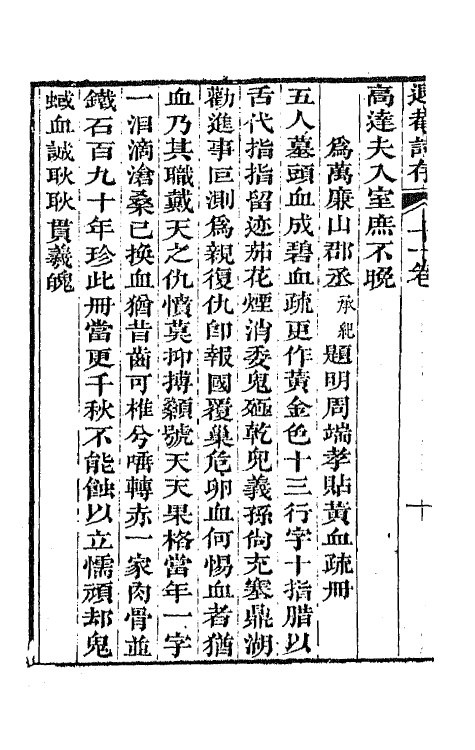 退菴詩存 十卷 十
高達夫入室庶不晚
爲萬廉山郡丞承紀題明周端孝貼黃血疏冊
五人墓頭血成碧血疏更作黃金色十三行字十指腊以
舌代指指留迹茄花煙消委鬼殛乾兒義孫尙充塞鼎湖
勸進事叵測爲親復仇卽報國覆巢危卵血何惕血者猶
血乃其職戴天之仇憤莫抑搏顙號天天果格當年一字
一淚滴滄桑已換血猶昔齒可椎兮嚥轉赤一家肉骨並
鐵石百九十年珍此冊當更千秋不能蝕以立懦頑却鬼
蜮血誠耿耿貫羲魄